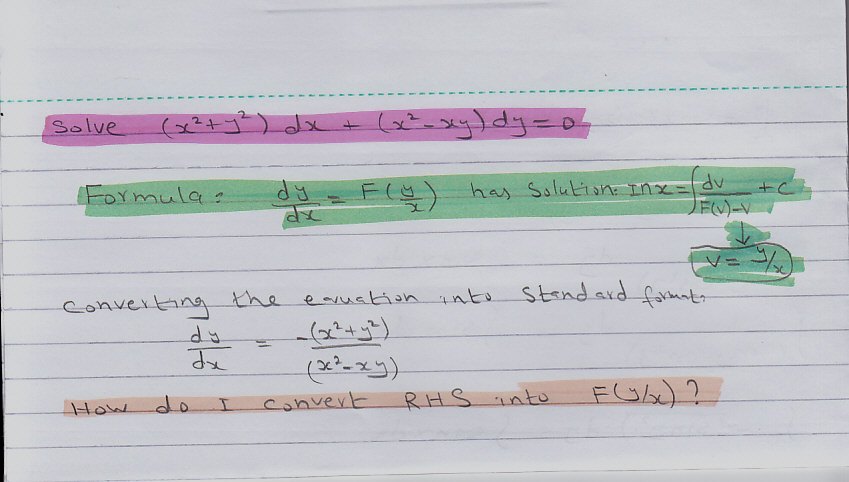 Solve (x²+y²) dx + (x²-xy) dy = 0
Formula: dy/dx = F(y/x) has Solution: In x = ∫ dv/F(v)-v + c
↓
v = y/x
Converting the equation into Standard format:
dy/dx = -(x²+y²)/(x²-xy)
How do I convert RHS into F(y/x)?